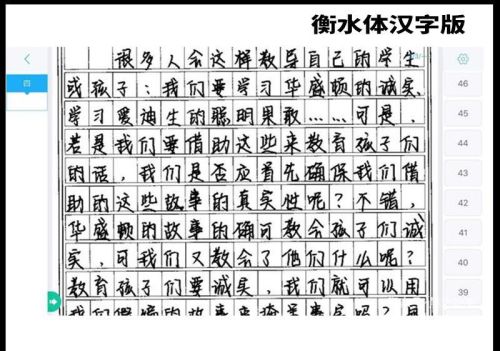 衡水体汉字版
四
很多人会这样教导自己的学生
或孩子：我们要学习华盛顿的诚实，
学习爱迪生的聪明果敢……可是，
若是我们要借助这些来教育孩子们
的话，我们是否应首先确保我们借
助的这些故事的真实性呢？不错，
华盛顿的故事的确可教会孩子们诚
实，可我们又教会了他们什么呢？
教育孩子们要诚实，我们就可以用
我们假编的故事来掩盖事实吗？
46
45
44
43
42
41
40
39